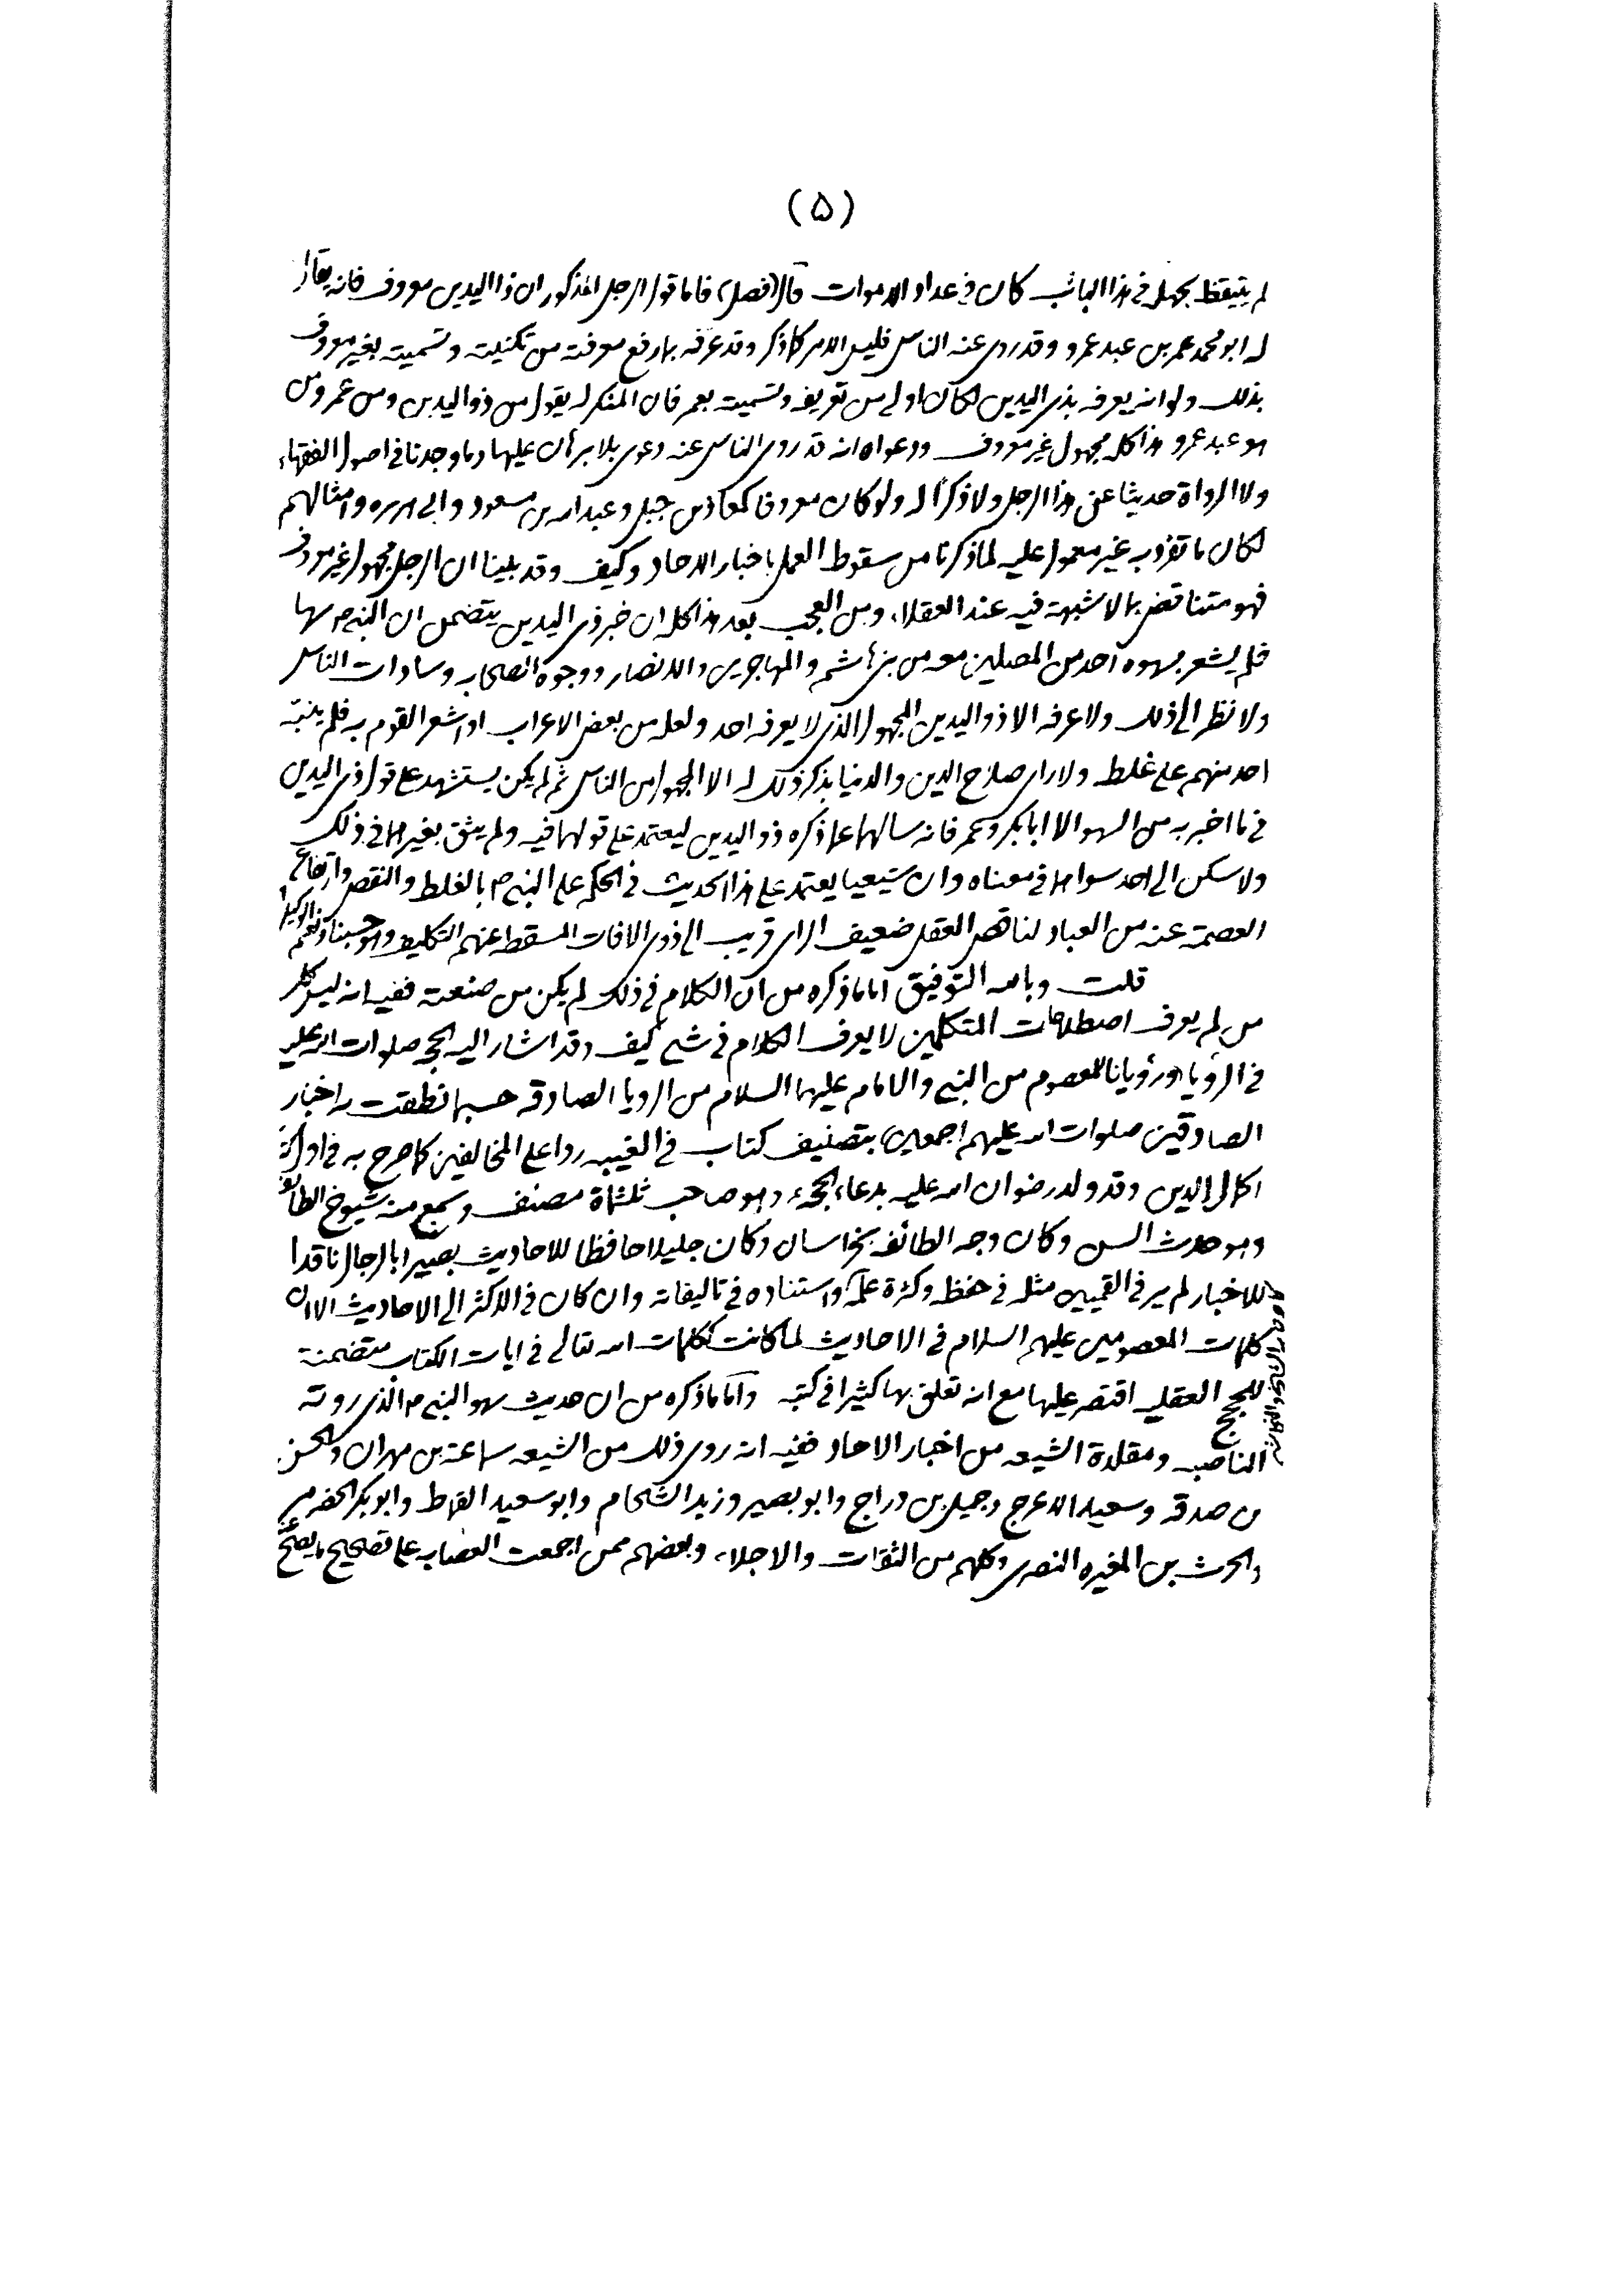 (٥)
لم يتيقظ بجهله في هذا الباب كان في عداد الاموات قال (فصل) فاما قول الرجل المذكور ان ذا اليدين معروف فانه يقال
له ابو محمد عمر بن عبد عمرو وقد روى عنه الناس فليس الامر كما ذكر وقد عرفه بما رفع معرفته من تكنيته وتسميته بغير معروف
بذلك ولو انه يعرفه بذى اليدين لكان اولى من تعريفه وتسميته بعمر فان المنكر له يقول من ذو اليدين ومن عمر ومن
هو عبد عمرو هذا كله مجهول غير معروف ودعواه انه قد روى الناس عنه دعوى بلا برهان عليها وما وجدنا في اصول الفقهاء
ولا الرواة حديثا عن هذا الرجل ولا ذكرا له ولو كان معروفا كمعاذ بن جبل وعبد الله بن مسعود وابى هريره وامثالهم
لكان ما تفرد به غير معمول عليه لما ذكرنا من سقوط العمل باخبار الاحاد وكيف وقد بينا ان الرجل مجهول غير معروف
فهو متناقض بما لا شبهة فيه عند العقلاء ومن العجب بعد هذا كله ان خبر ذى اليدين يتضمن ان النبى م سها
فلم يشعر بسهوه احد من المصلين معه من بنى هاشم والمهاجرين والانصار ووجوه الصحابه وسادات الناس
ولا نظر الى ذلك ولا عرفه الا ذو اليدين المجهول الذى لا يعرفه احد ولعله من بعض الاعراب او اشعر القوم به فلم ينبه
احد منهم على غلطه ولا راى صلاح الدين والدنيا بذكر ذلك له الا المجهول من الناس ثم لم يكن يستشهد على قول ذى اليدين
في ما اخبر به من السهو الا ابا بكر وعمر فانه سالهما عما ذكره ذو اليدين ليعتمد على قولهما فيه ولم يثق بغيرهما في ذلك
ولا سكن الى احد سواهما في معناه وان شيعيا يعتمد على هذا الحديث في الحكم على النبى م بالغلط والنقص وارتفاع
العصمة عنه من العباد لناقص العقل ضعيف الراى قريب الى ذوى الافات المسقطه عنهم التكليف وهو حسبنا ونعم الوكيل
قلت وبالله التوفيق اما ما ذكره من ان الكلام في ذلك لم يكن من صنعته ففيه انه ليس كل
من لم يعرف اصطلاحات المتكلمين لا يعرف الكلام في شىء كيف وقد اشار اليه الحجه صلوات الله عليه
في الرؤيا (ورؤيانا للمعصوم من النبى والامام عليهما السلام من الرويا الصادقه حسبما نطقت به اخبار
الصادقين صلوات الله عليهم اجمعين) بتصنيف كتاب في الغيبه ردا على المخالفين كما صرح به في اول
اكمال الدين وقد ولد رضوان الله عليه بدعاء الحجه ع وهو صاحب ثلثماة مصنف وسمع منه شيوخ الطائفه
وهو حدث السن وكان وجه الطائفه بخراسان وكان جليلا حافظا للاحاديث بصيرا بالرجال ناقدا
للاخبار لم ير في القميين مثله في حفظه وكثرة علمه واستناده في تاليفاته وان كان في الاكثر الى الاحاديث الا ان
كلمات المعصومين عليهم السلام في الاحاديث لما كانت ككلمات الله تعالى في ايات الكتاب متضمنة
للحجج العقليه اقتصر عليها مع انه تعلق بها كثيرا في كتبه واما ما ذكره من ان حديث سهو النبى م الذى روته
الناصبه ومقلدة الشيعه من اخبار الاحاد ففيه انه روى ذلك من الشيعه سماعة بن مهران والحسن
بن صدقه وسعيد الاعرج وجميل بن دراج وابو بصير وزيد الشحام وابو سعيد القماط وابو بكر الحضرمى
والحرث بن المغيره النصرى وكلهم من الثقات والاجلاء وبعضهم ممن اجمعت العصابه على تصحيح ما يصح عنه